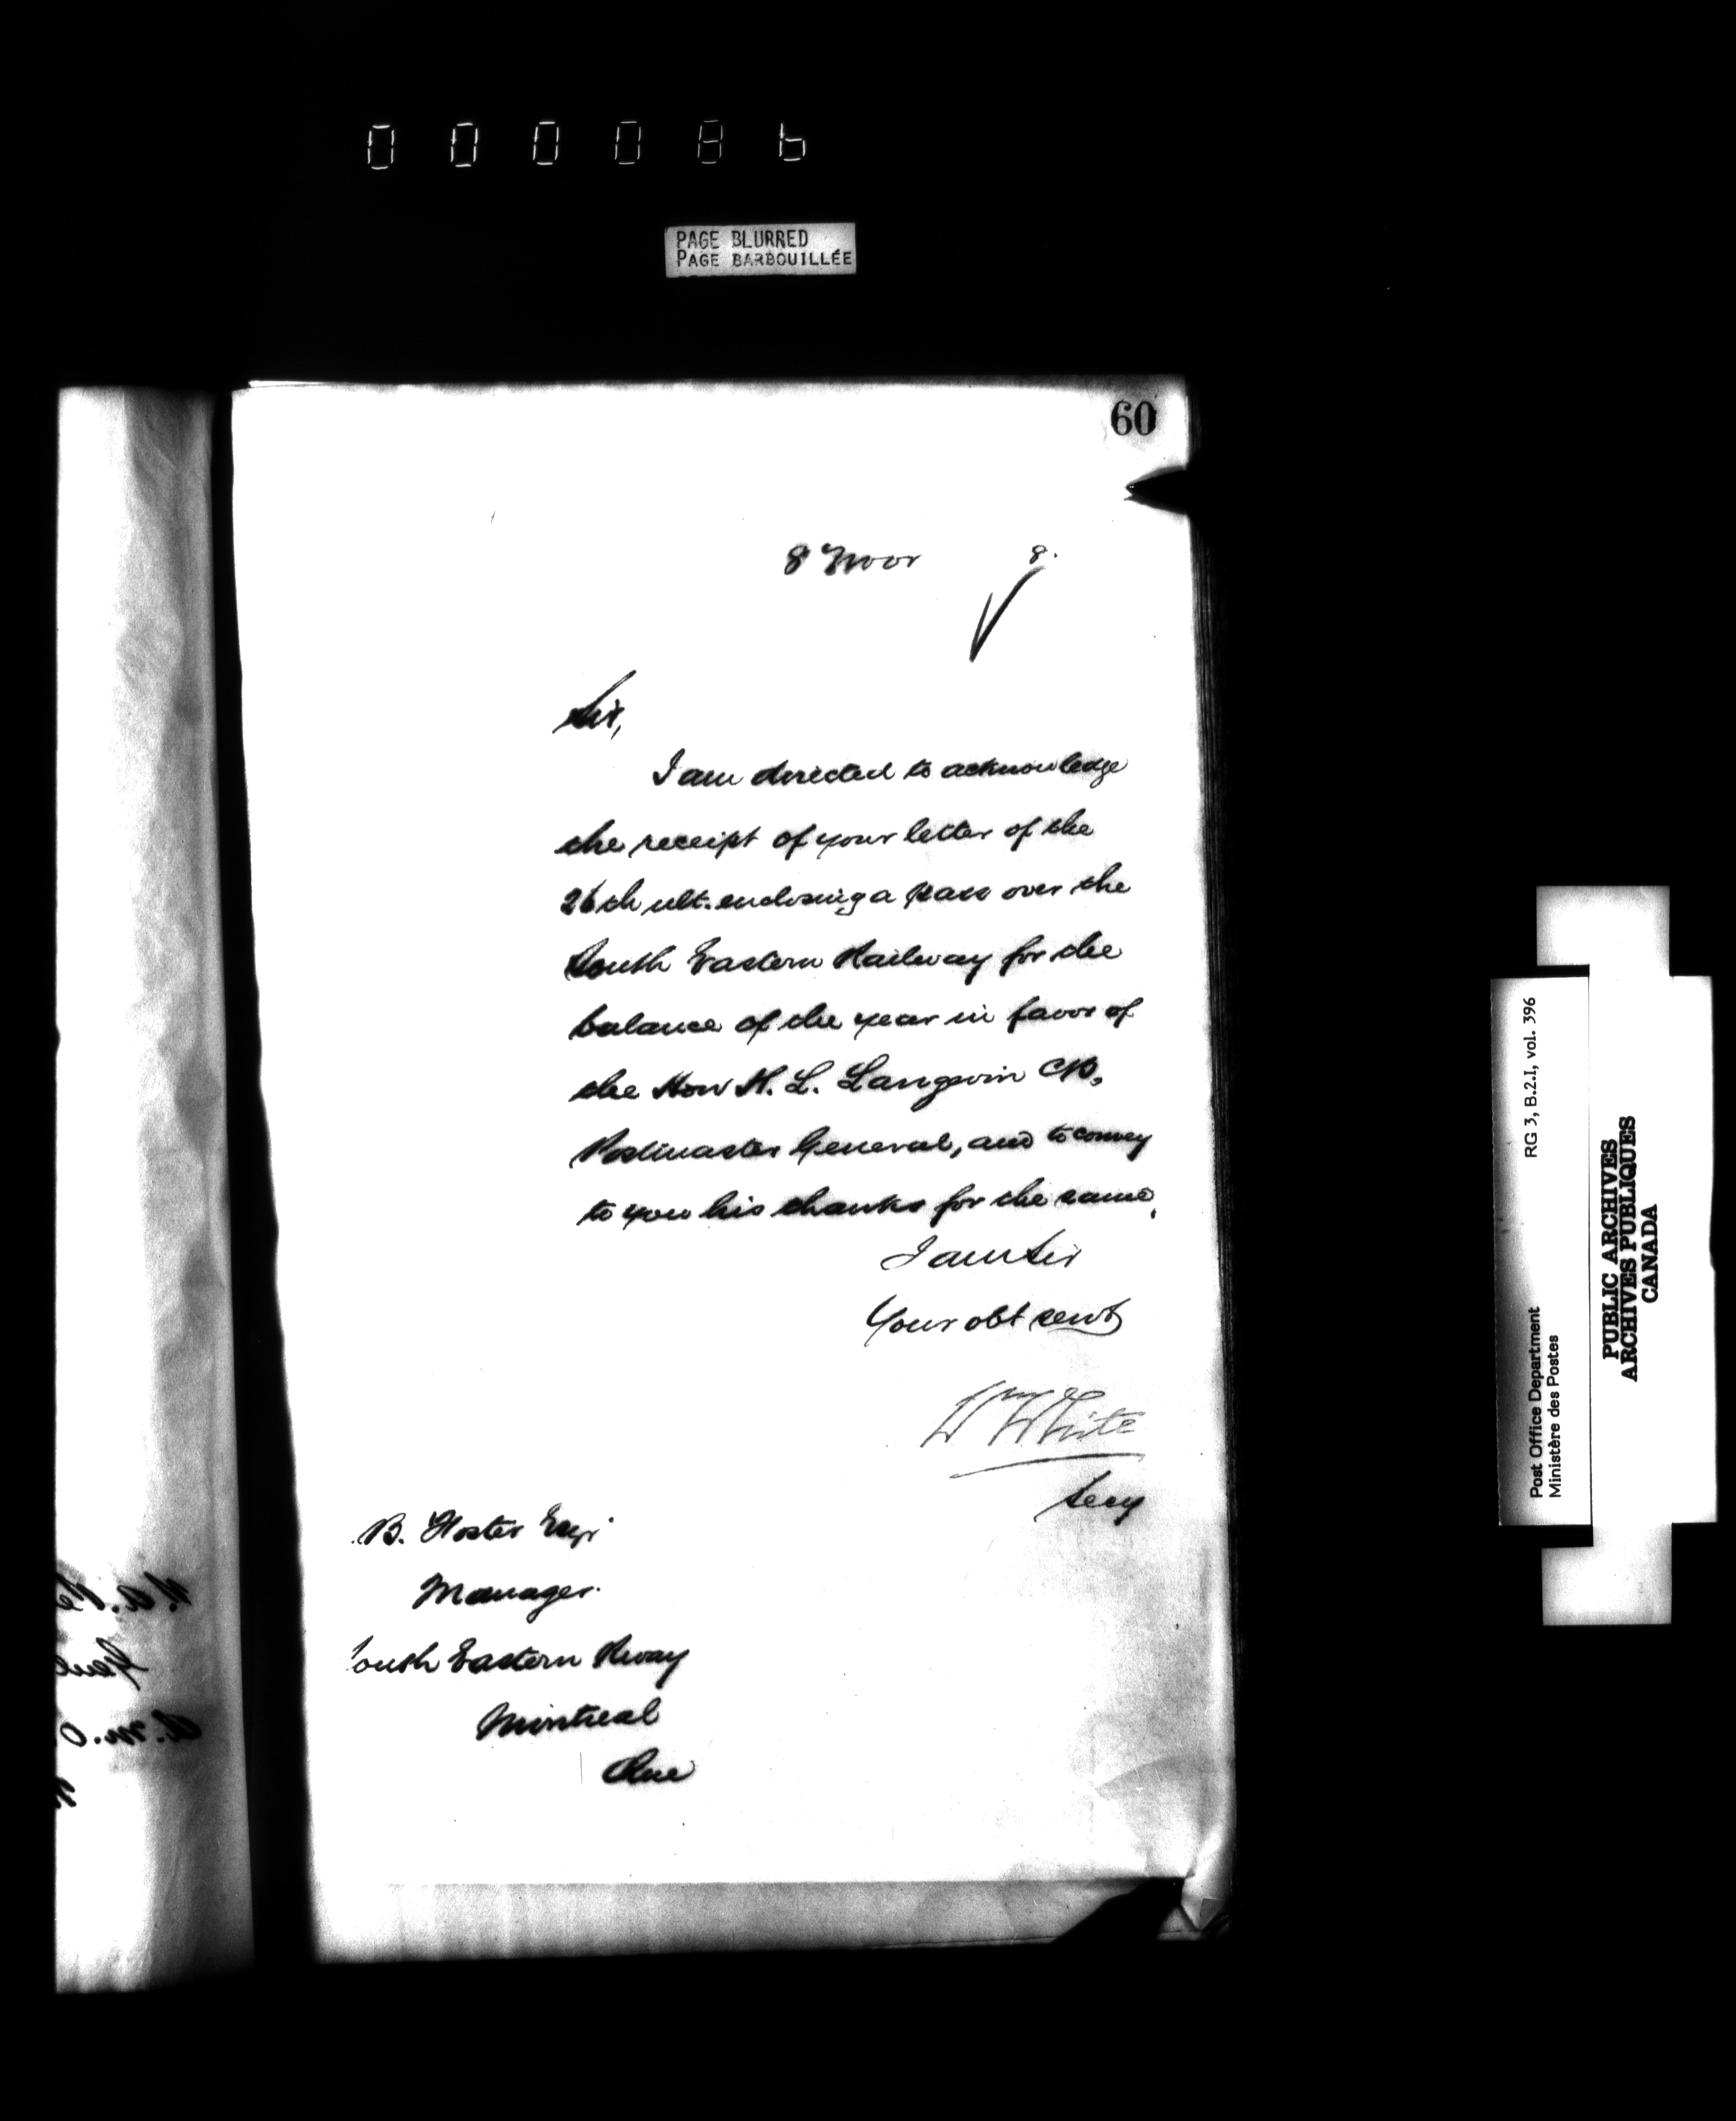 000086
PAGE BLURRED
PAGE BARBOUILLÉE
60
8 Novr 8.
Sir,
I am directed to acknowledge
the receipt of your letter of the
26th ult. enclosing a pass over the
South Eastern Railway for the
balance of the year in favor of
the Hon H. L. Langevin CB,
Postmaster General, and to convey
to you his thanks for the same.
I am Sir
Your obt servt
Wm White
Secy
B. Foster Esqr
Manager.
South Eastern Rway
Montreal
Que
RG 3, B.2.I, vol. 396
Post Office Department
Ministère des Postes
PUBLIC ARCHIVES
ARCHIVES PUBLIQUES
CANADA